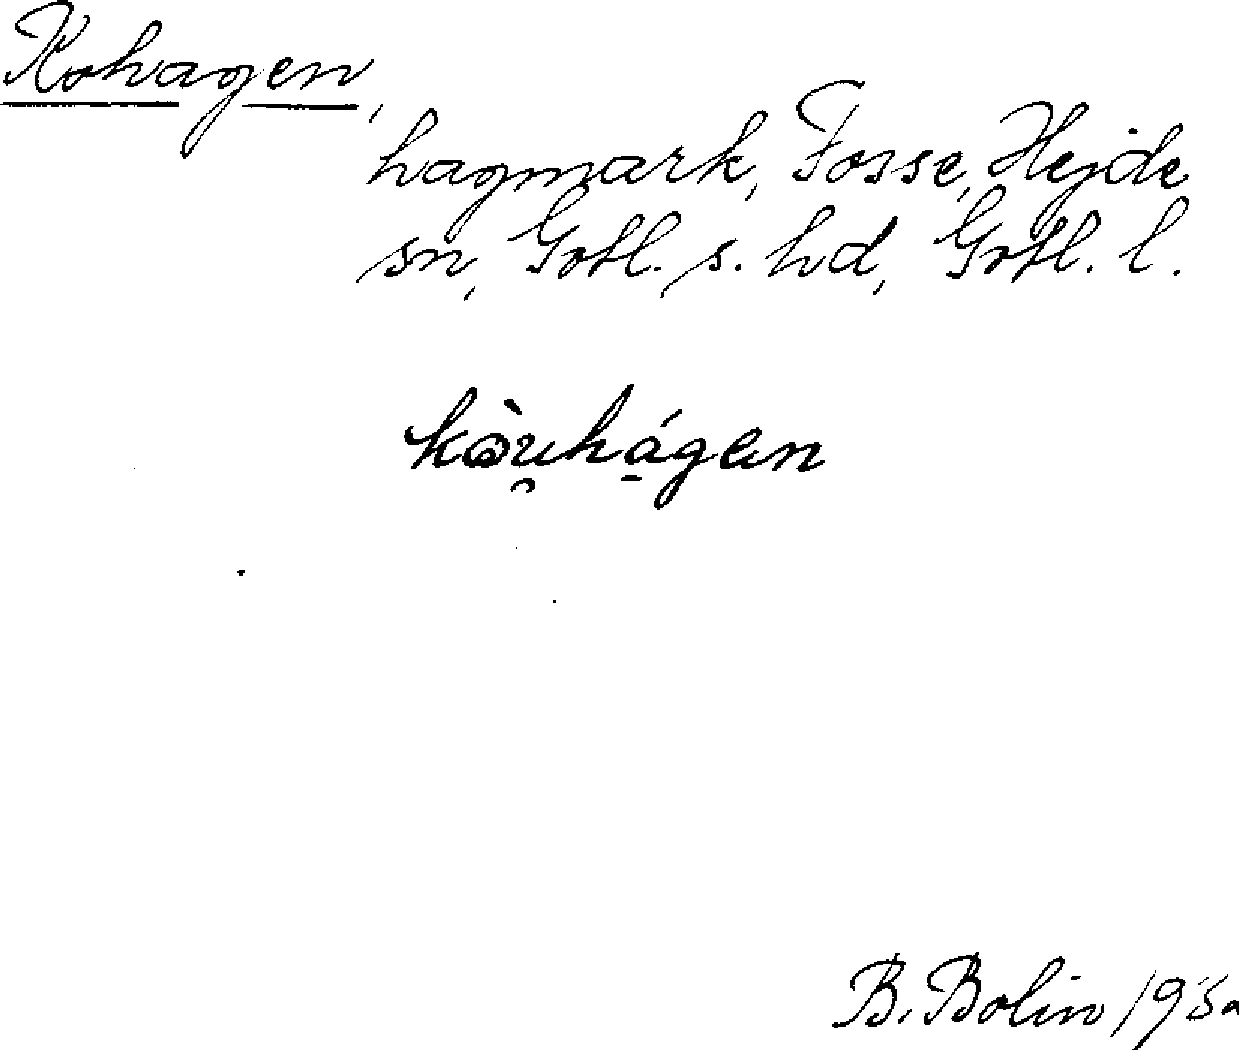 Kohagen,
hagmark, Fosse, Hejde
sn, Gotl. s. hd, Gotl. l.
kòu̯há̱gen
B. Bolin